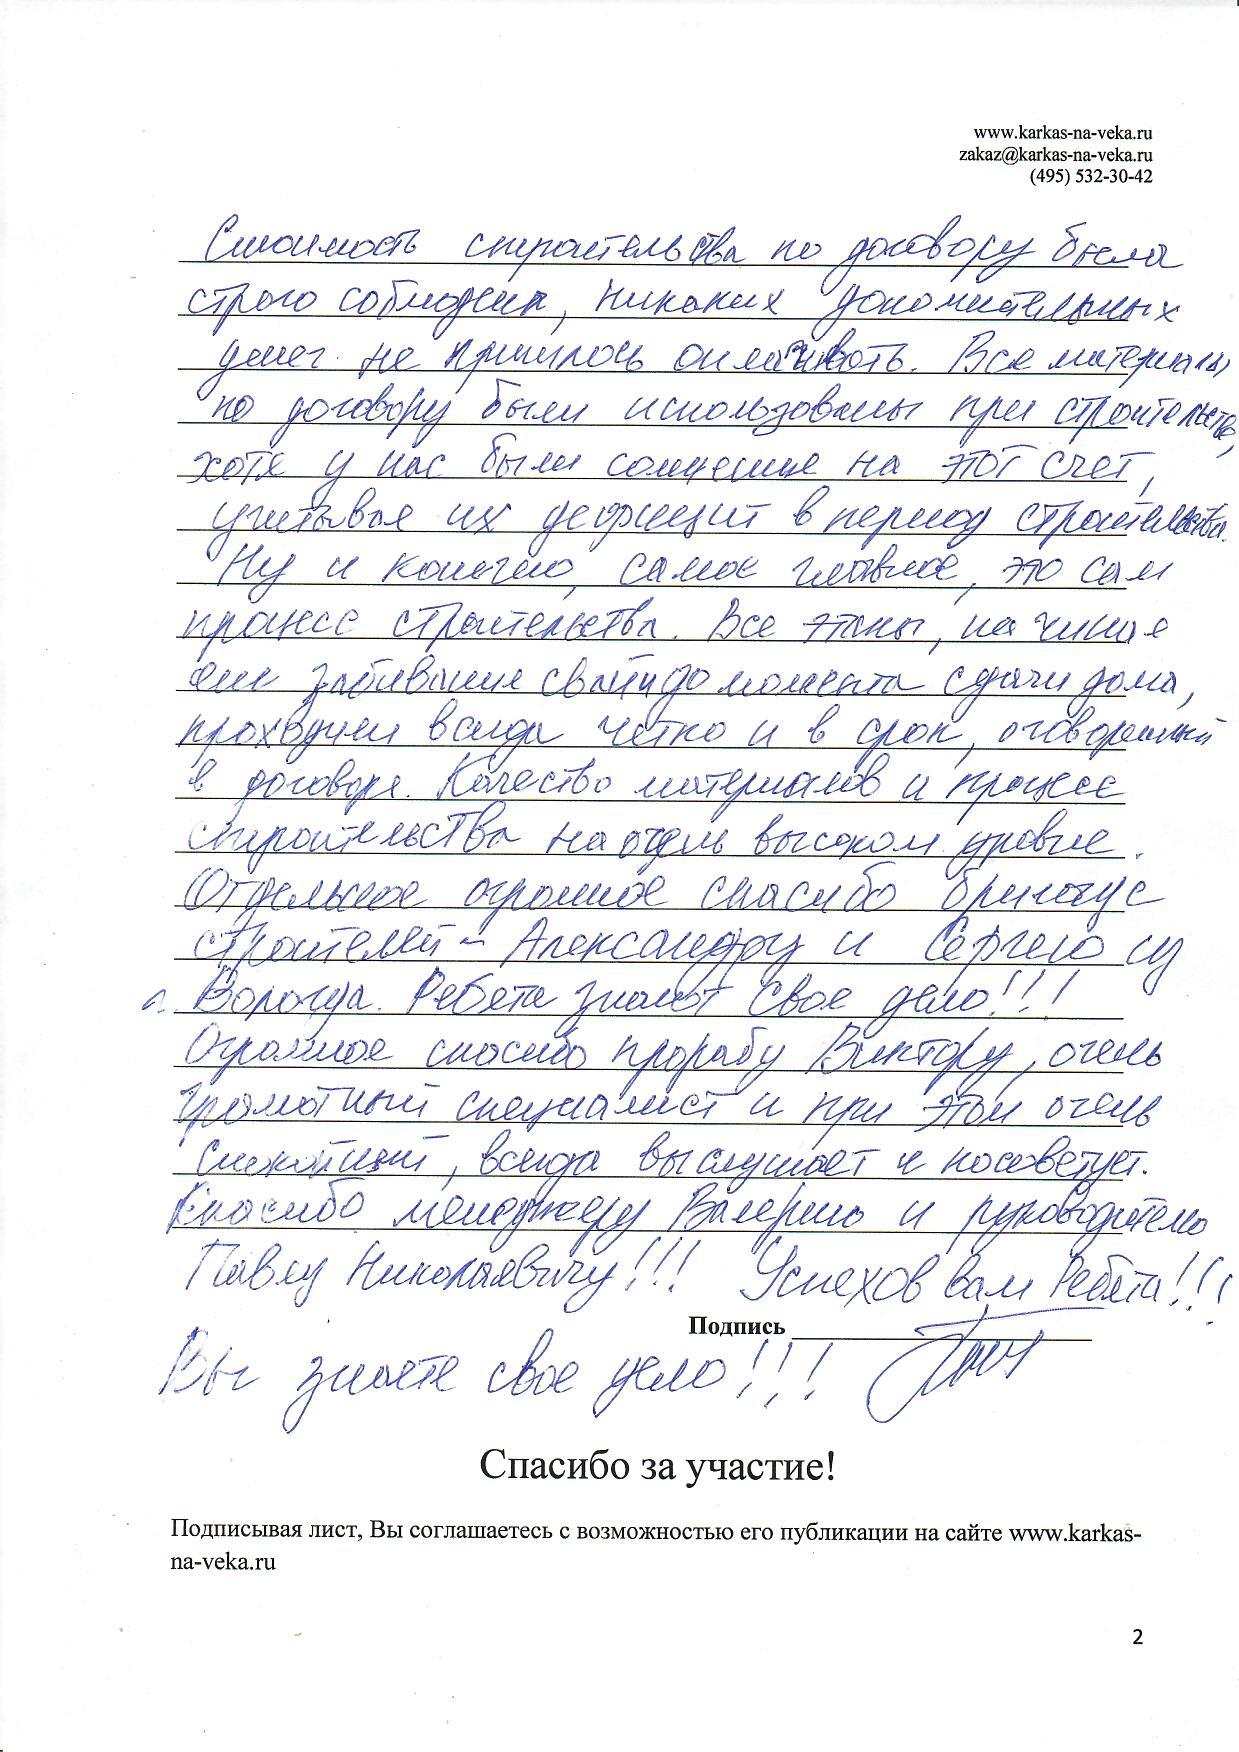 www.karkas-na-veka.ru
zakaz@karkas-na-veka.ru
(495) 532-30-42
Стоимость строительства по договору была
строго соблюдена, никаких дополнительных
денег не пришлось оплачивать. Все материалы
по договору были использованы при строительстве,
хотя у нас были сомнения на этот счет,
учитывая их дефицит в период строительства.
Ну и конечно, самое главное, это сам
процесс строительства. Все этапы, начиная
забивания свай и до момента сдачи дома,
проходили всегда четко и в срок, оговоренный
в договоре. Качество материалов и процесс
строительства на очень высоком уровне.
Отдельное огромное спасибо бригаде
строителей - Александру и Сергею из
г. Вологда. Ребята знают свое дело!!!
Огромное спасибо прорабу Виктору, очень
грамотный специалист и при этом очень
спокойный, всегда выслушает и посоветует.
Спасибо менеджеру Валерию и руководителю
Павлу Николаевичу!!! Успехов вам Ребята!!!
Подпись
Вы знаете свое дело!!!
Спасибо за участие!
Подписывая лист, Вы соглашаетесь с возможностью его публикации на сайте www.karkas-
na-veka.ru
2